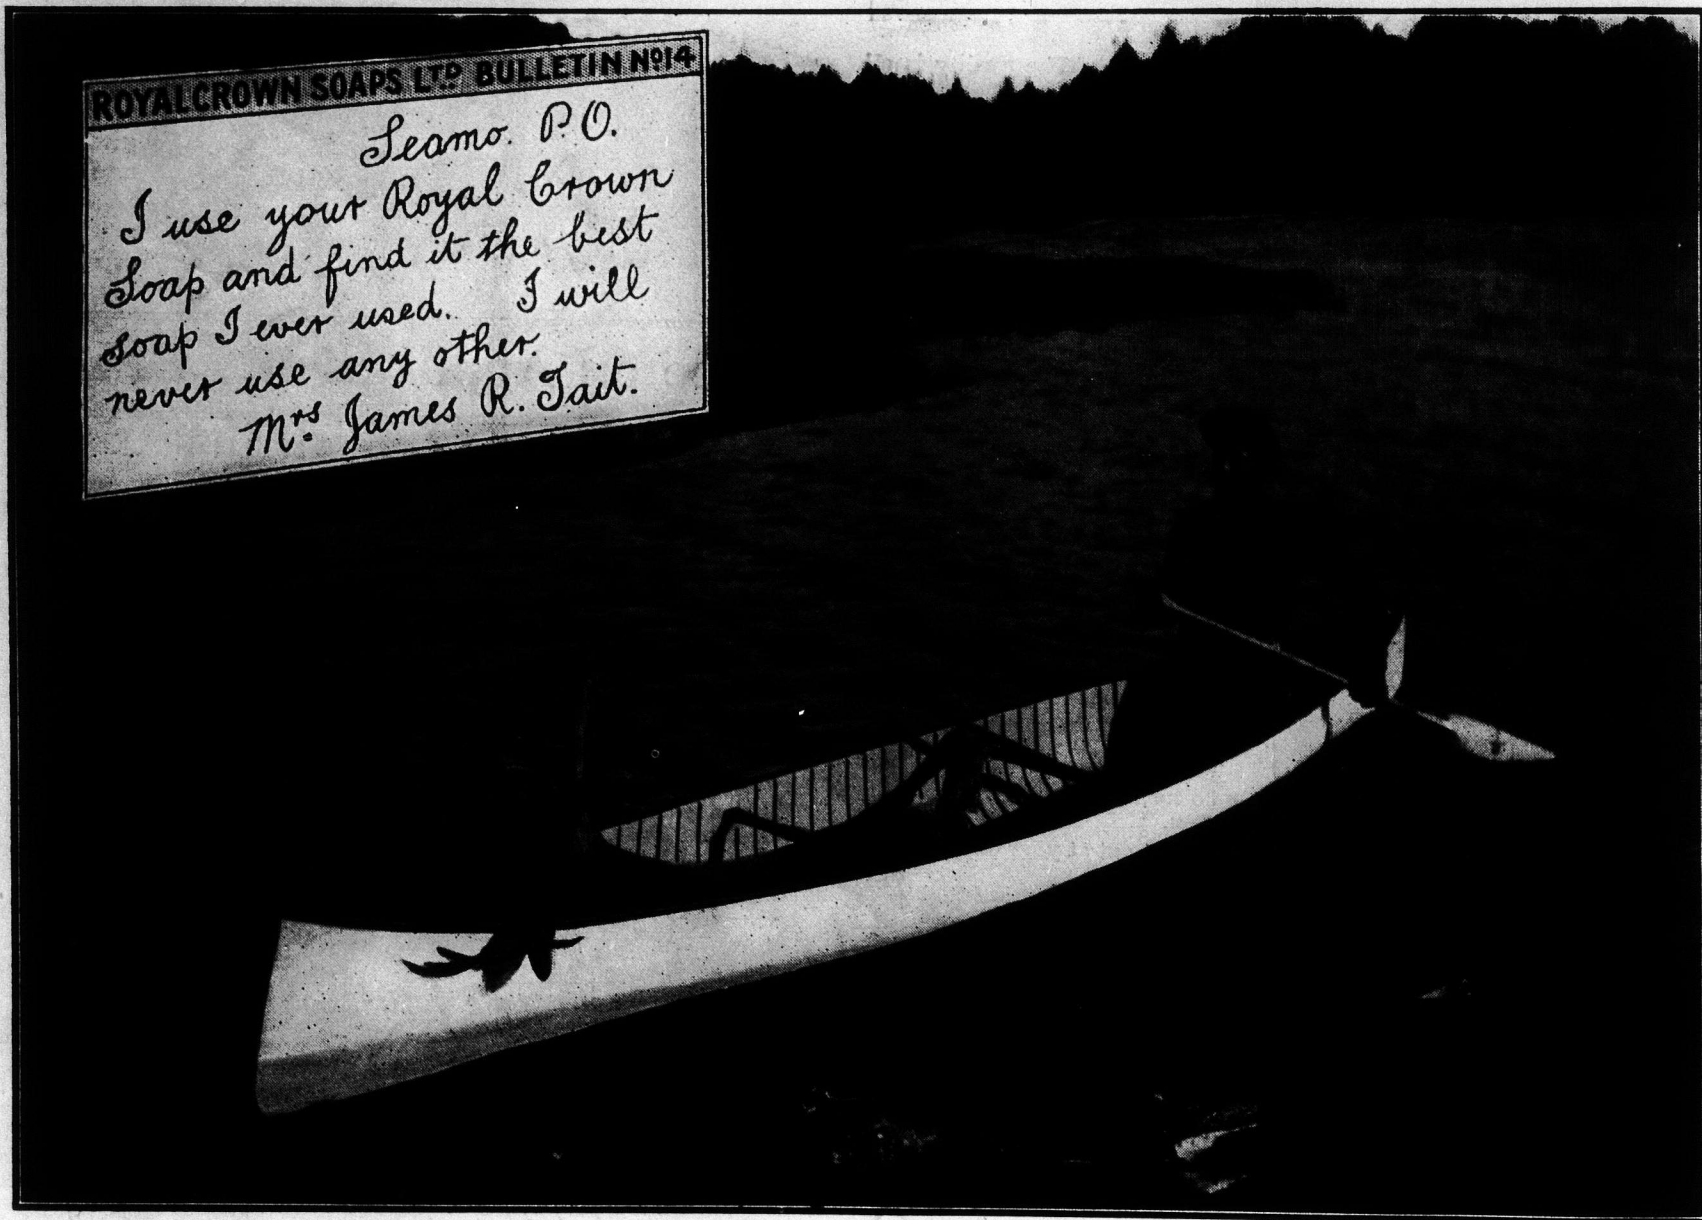 ROYAL CROWN SOAPS LTD BULLETIN No 14
Seamo. P.O.
I use your Royal Crown
Soap and find it the best
soap I ever used. I will
never use any other.
Mrs. James R. Tait.